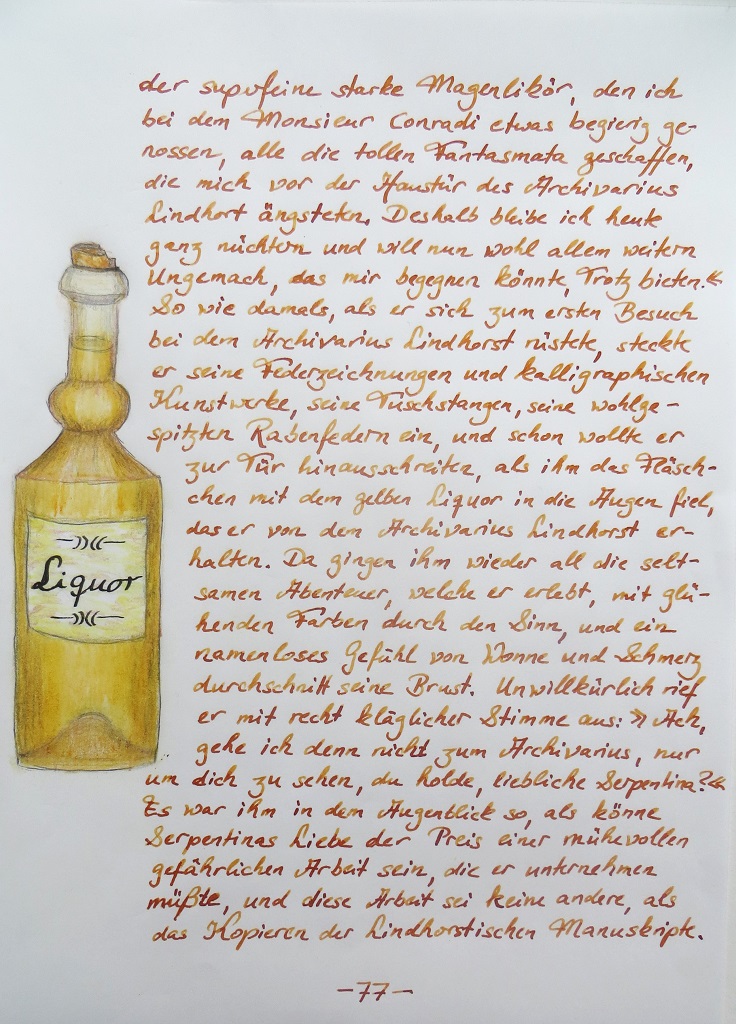 der superfeine starke Magenlikör, den ich
bei dem Monsieur Conradi etwas begierig ge-
nossen, alle die tollen Fantasmata geschaffen,
die mich vor der Haustür des Archivarius
Lindhort ängsteten. Deshalb bleibe ich heute
ganz nüchtern und will nun wohl allem weitern
Ungemach, das mir begegnen könnte, Trotz bieten.«
So wie damals, als er sich zum ersten Besuch
bei dem Archivarius Lindhorst rüstete, steckte
er seine Federzeichnungen und kalligraphischen
Kunstwerke, seine Tuschstangen, seine wohlge-
spitzten Rabenfedern ein, und schon wollte er
zur Tür hinausschreiten, als ihm das Fläsch-
chen mit dem gelben Liquor in die Augen fiel,
das er von dem Archivarius Lindhorst er-
halten. Da gingen ihm wieder all die selt-
samen Abenteuer, welche er erlebt, mit glü-
henden Farben durch den Sinn, und ein
namenloses Gefühl von Wonne und Schmerz
durchschnitt seine Brust. Unwillkürlich rief
er mit recht kläglicher Stimme aus: »Ach,
gehe ich denn nicht zum Archivarius, nur
um dich zu sehen, du holde, liebliche Serpentina?«
Es war ihm in dem Augenblick so, als könne
Serpentinas Liebe der Preis einer mühevollen
gefährlichen Arbeit sein, die er unternehmen
müßte, und diese Arbeit sei keine andere, als
das Kopieren der Lindhorstischen Manuskripte.
Liquor
-77-